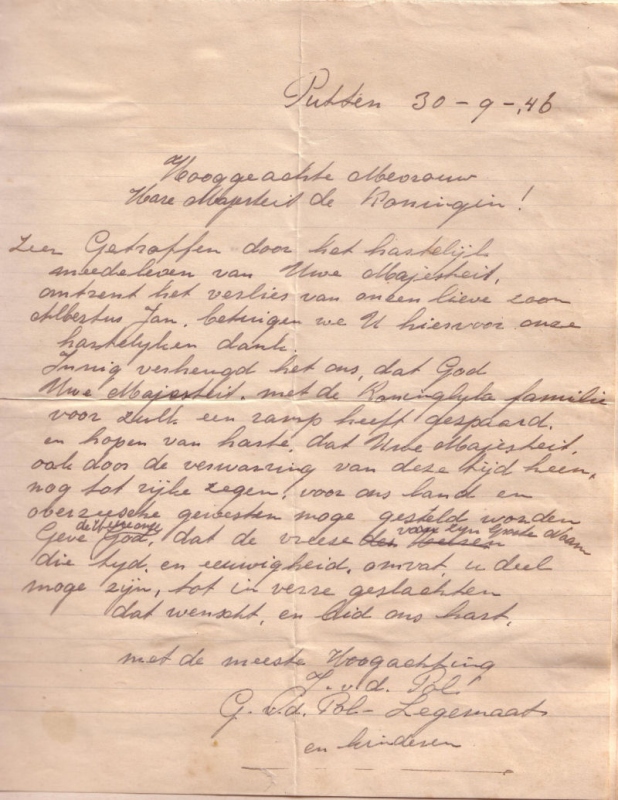 Putten 30-9-,46
Hooggeachte Mevrouw
Hare Majesteit de Koningin!
Zeer Getroffen door het hartelijk
meedeleven van Uwe Majesteit,
omtrent het verlies van onzen lieve zoon
Albertus Jan, betuigen we U hiervoor onze
hartelyken dank.
Innig verheugd het ons, dat God
Uwe Majesteit, met de Koninglyke familie
voor zulk een ramp heeft gespaard.
en hopen van harte, dat Uwe Majesteit,
ook door de verwarring van deze tijd heen,
nog tot rijke zegen, voor ons land en
overzeesche gewesten moge gesteld worden
Geve God, dat de vreese van Zyn Groote Naam
die tyd, en eeuwigheid, omvat, u deel
moge zijn, tot in verre geslachten
dat wenscht, en bid ons hart,
met de meeste Hoogachting
J. v.d. Pol!
G. v.d. Pol - Legemaat
en kinderen